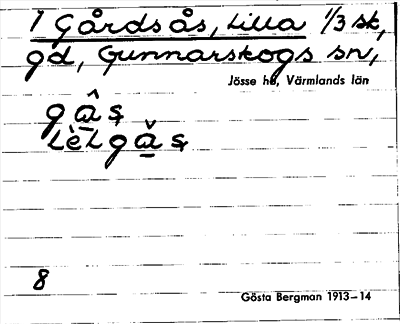 1 Gårdsås, Lilla 1/3 sk,
gd, Gunnarskogs sn,
Jösse hd, Värmlands län
gâ̲s̩
lèl gă̲s̩
8
Gösta Bergman 1913–14